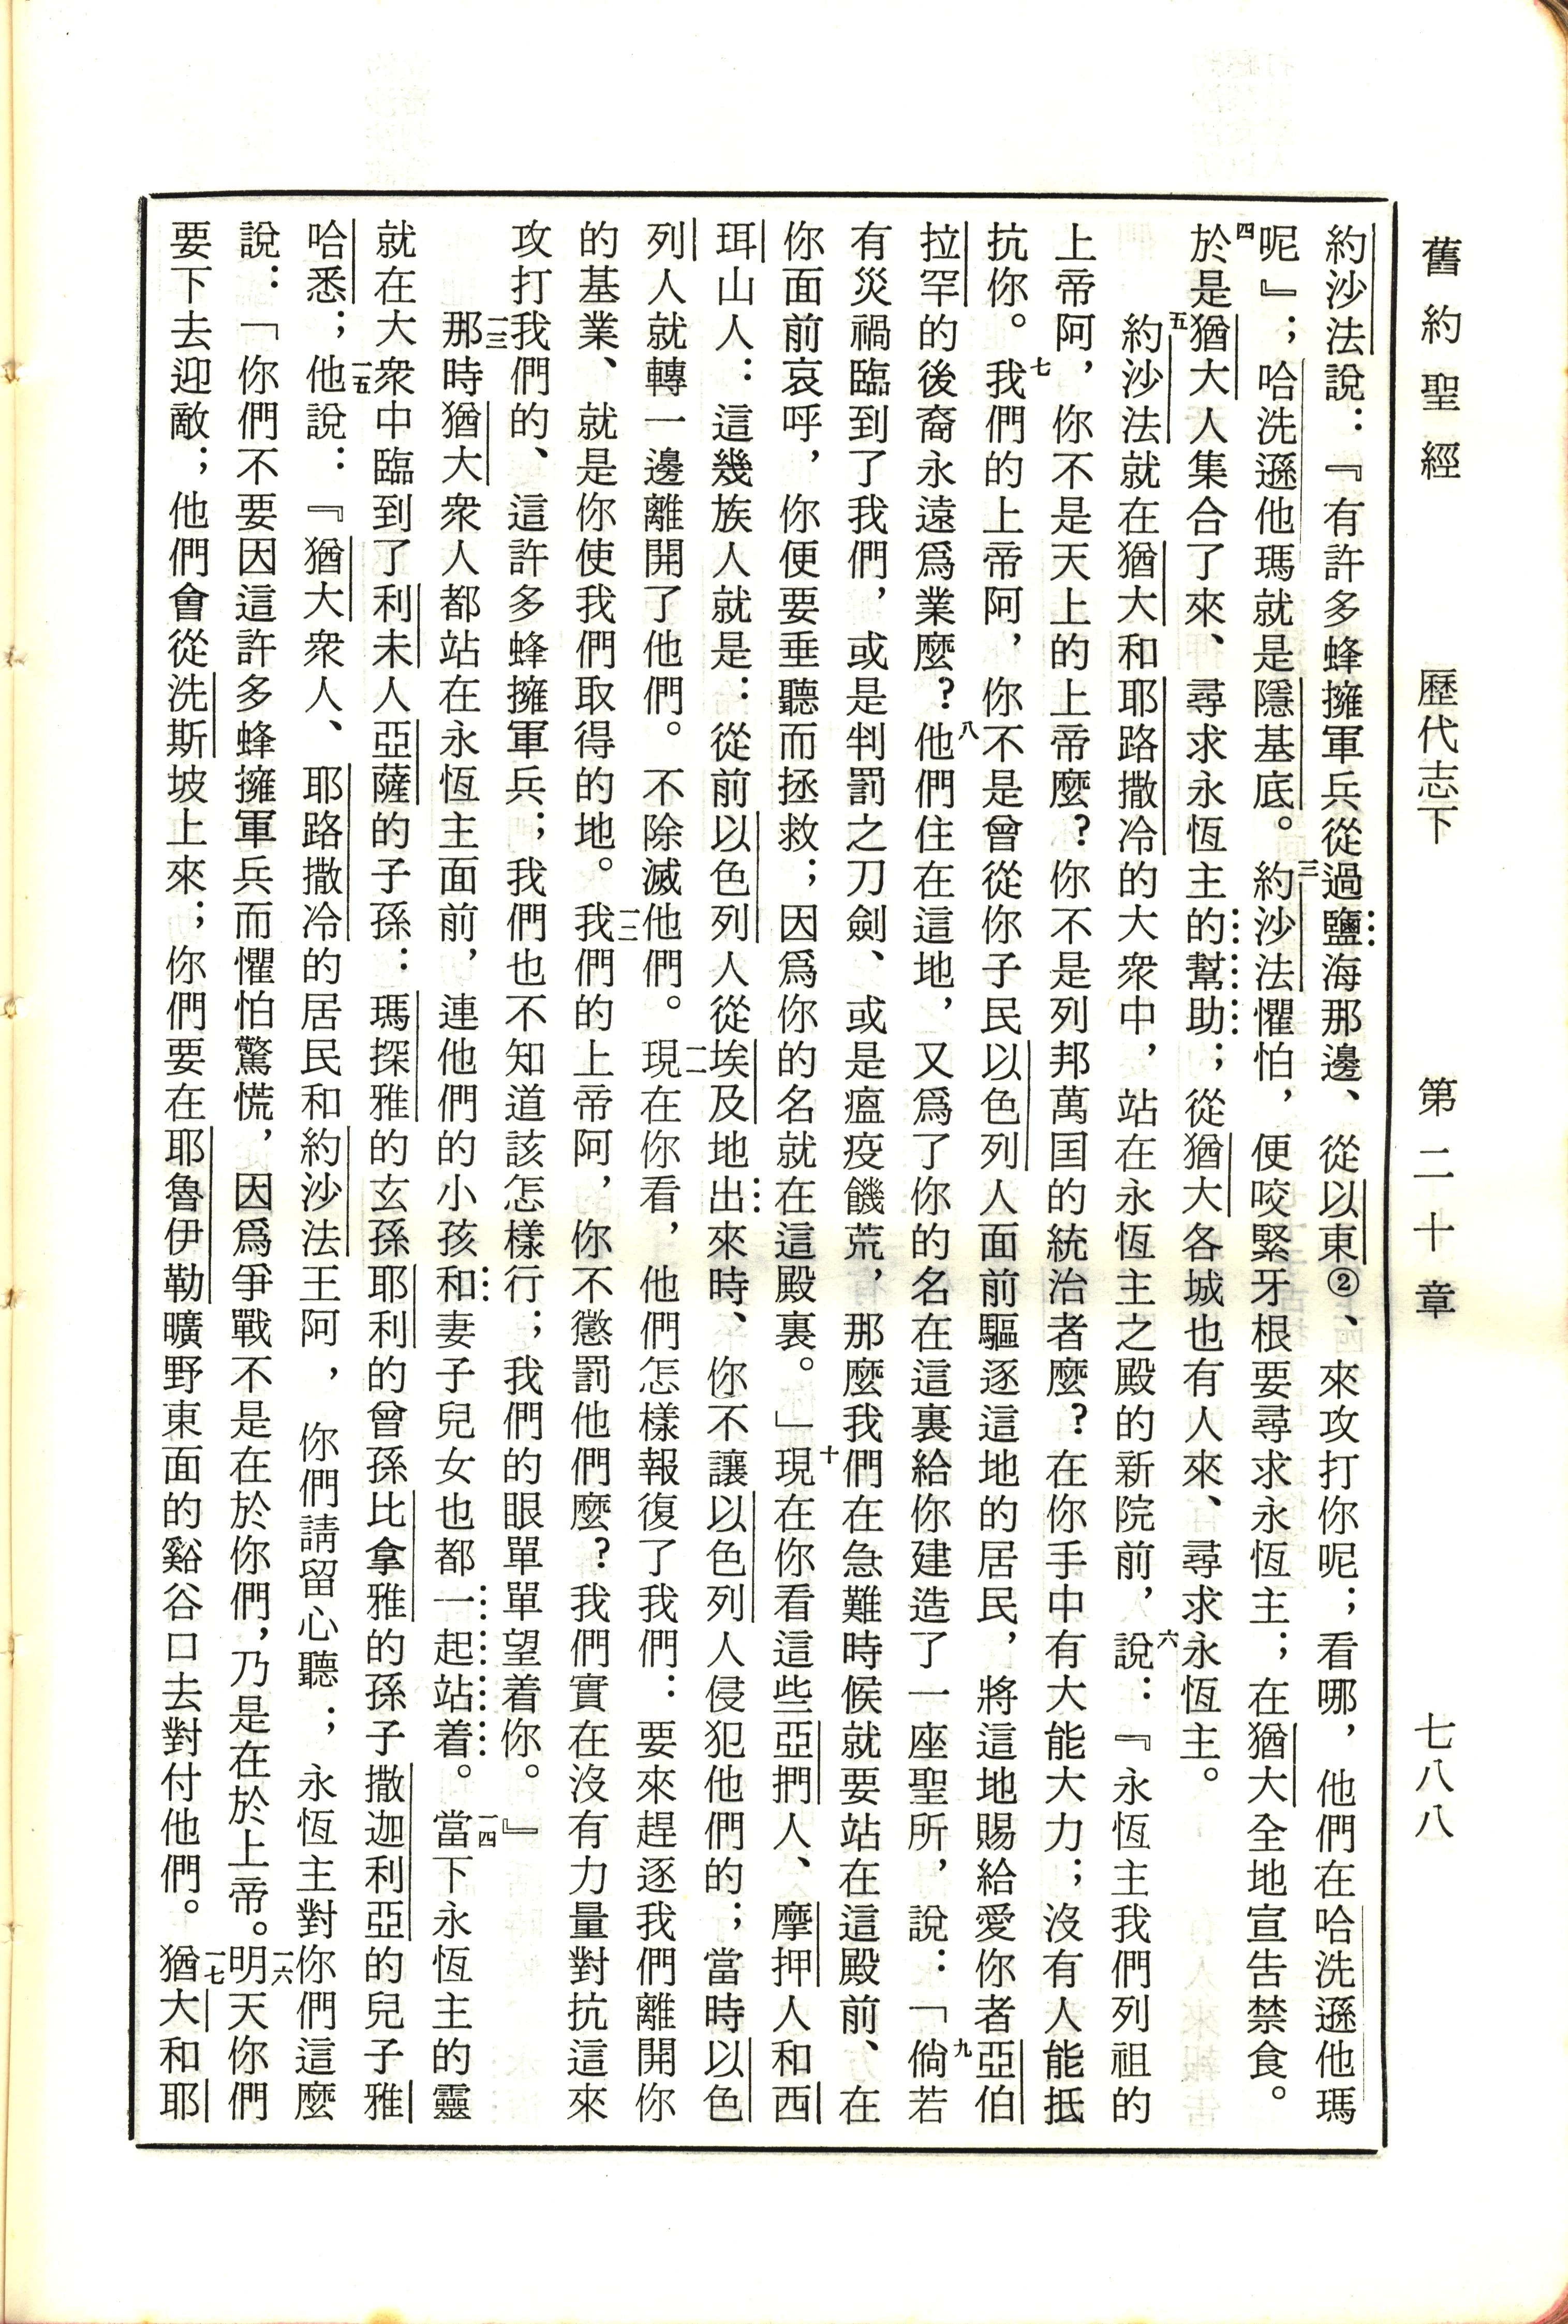 舊約聖經　歷代志下　第二十章　七八八
約沙法說：『有許多蜂擁軍兵從過鹽海那邊、從以東②、來攻打你呢；看哪，他們在哈洗遜他瑪
呢』；哈洗遜他瑪就是隱基底。三約沙法懼怕，便咬緊牙根要尋求永恆主；在猶大全地宣告禁食。
四於是猶大人集合了來、尋求永恆主的幫助；從猶大各城也有人來、尋求永恆主。
五約沙法就在猶大和耶路撒冷的大衆中，站在永恆主之殿的新院前，六說：『永恆主我們列祖的
上帝阿，你不是天上的上帝麼？你不是列邦萬国的統治者麼？在你手中有大能大力；沒有人能抵
抗你。七我們的上帝阿，你不是曾從你子民以色列人面前驅逐這地的居民，將這地賜給愛你者亞伯
拉罕的後裔永遠爲業麼？八他們住在這地，又爲了你的名在這裏給你建造了一座聖所，說：九「倘若
有災禍臨到了我們，或是判罰之刀劍、或是瘟疫饑荒，那麼我們在急難時候就要站在這殿前、在
你面前哀呼，你便要垂聽而拯救；因爲你的名就在這殿裏。」十現在你看這些亞捫人、摩押人和西
珥山人：這幾族人就是：從前以色列人從埃及地出來時、你不讓以色列人侵犯他們的；當時以色
列人就轉一邊離開了他們。不除滅他們。一一現在你看，他們怎樣報復了我們：要來趕逐我們離開你
的基業、就是你使我們取得的地。一二我們的上帝阿，你不懲罰他們麼？我們實在沒有力量對抗這來
攻打我們的、這許多蜂擁軍兵；我們也不知道該怎樣行；我們的眼單單望着你。』
一三那時猶大衆人都站在永恆主面前，連他們的小孩和妻子兒女也都一起站着。一四當下永恆主的靈
就在大衆中臨到了利未人亞薩的子孫：瑪探雅的玄孫耶利的曾孫比拿雅的孫子撒迦利亞的兒子雅
哈悉；一五他說：『猶大衆人、耶路撒冷的居民和約沙法王阿，你們請留心聽；永恆主對你們這麼
說：「你們不要因這許多蜂擁軍兵而懼怕驚慌，因爲爭戰不是在於你們，乃是在於上帝。一六明天你們
要下去迎敵；他們會從洗斯坡上來；你們要在耶魯伊勒曠野東面的谿谷口去對付他們。一七猶大和耶